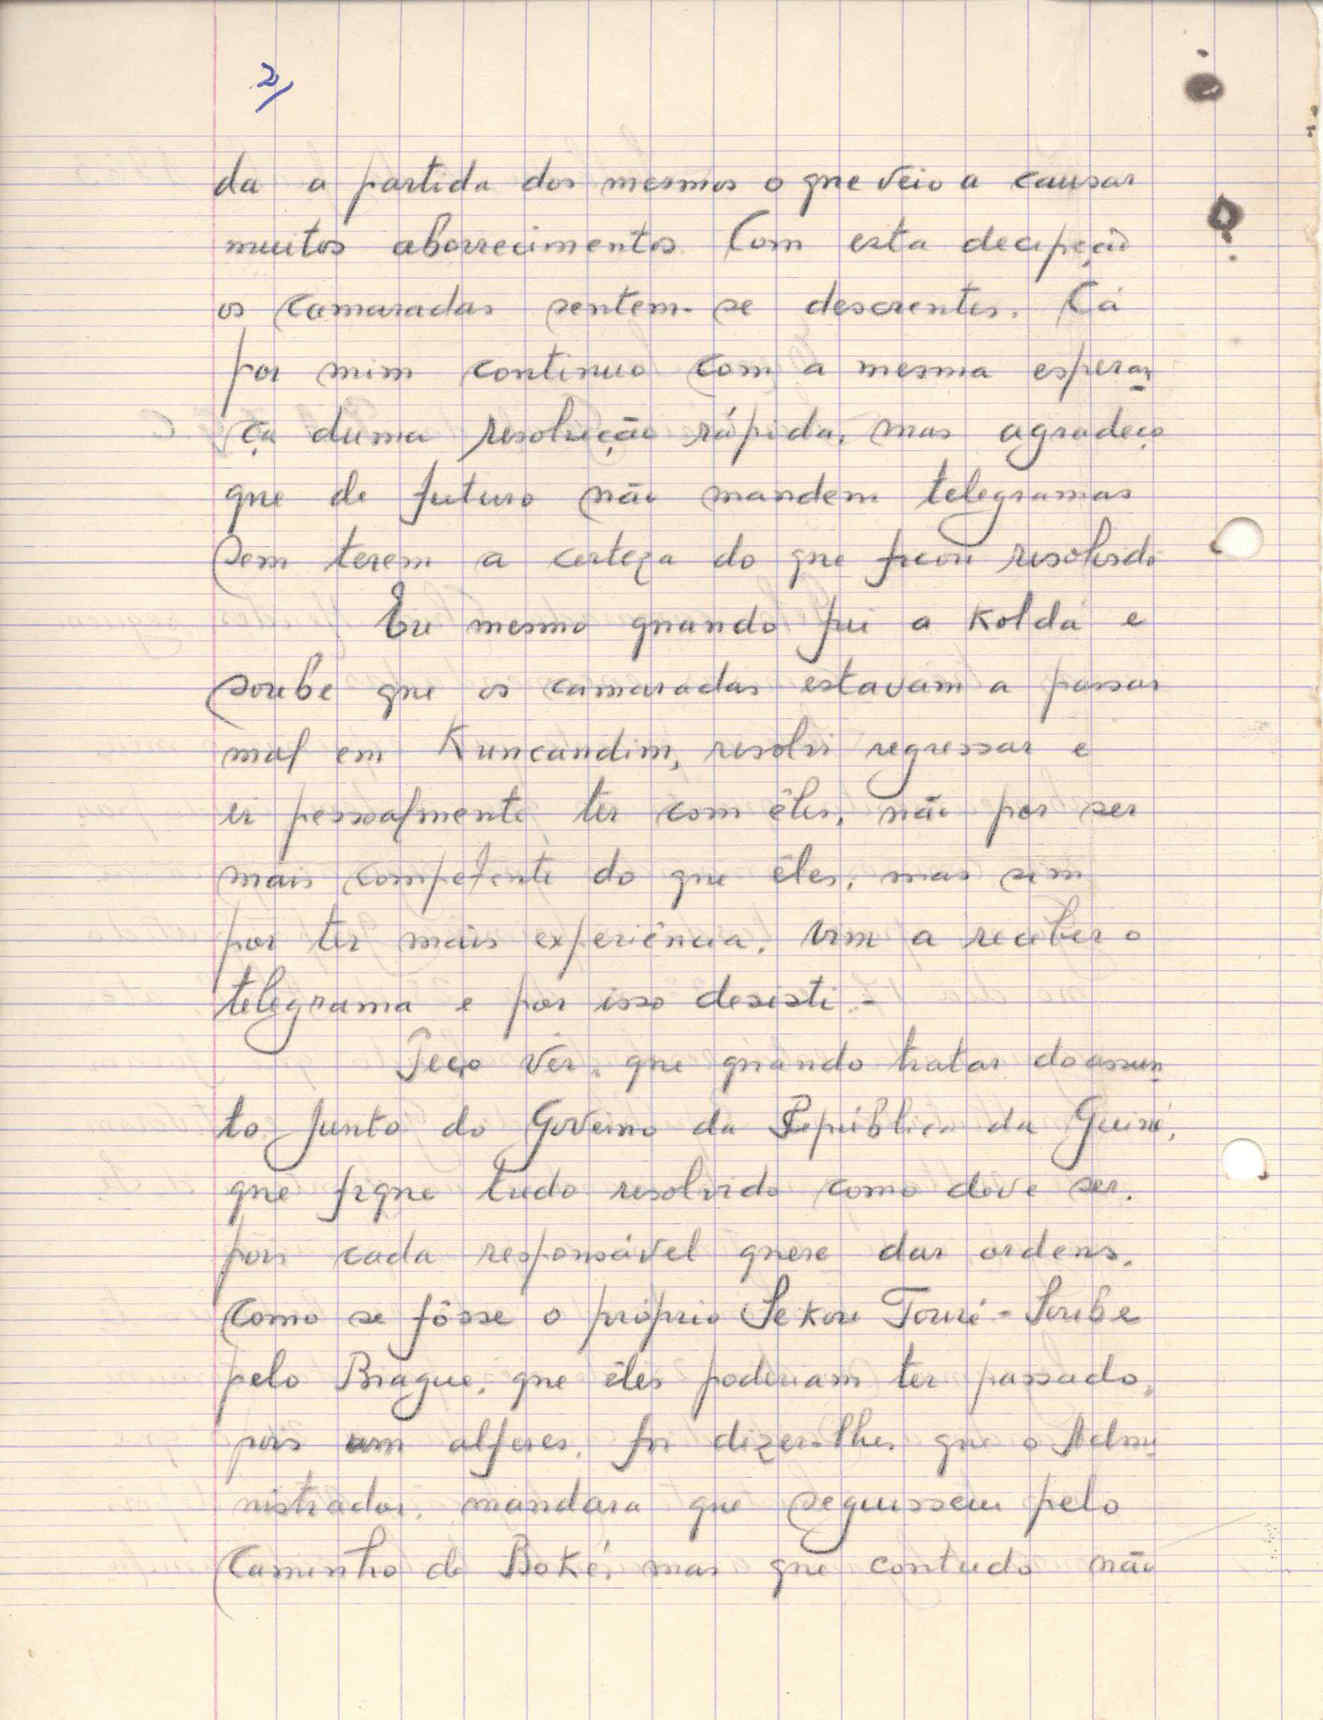 2/
da a partida dos mesmos o que veio a causar
muitos aborrecimentos. Com esta decepeção
os camaradas sentem-se descrentes. Cá
por mim continuo com a mesma esperan
ça duma resolução rápida, mas agradeço
que de futuro não mandem telegramas
sem terem a certeza do que ficou resolvido
Eu mesmo quando fui a Koldá e
soube que os camaradas estavam a passar
mal em Kuncandim, resolvi regressar e
ir pessoalmente ter com êles, não por ser
mais competente do que êles, mas sim
por ter mais experiência. Vim a receber o
telegrama e por isso desisti.-
Peço vêr, que quando tratar do assun
to junto do Governo da República da Guiné,
que fique tudo resolvido como deve ser,
pois cada responsável quere dar ordens,
como se fôsse o próprio Sekou Touré - Soube
pelo Biague, que êles poderiam ter passado,
pois um alferes, foi dizer-lhes que o Admi
nistrador, mandara que seguissem pelo
caminho de Boké, mas que contudo não